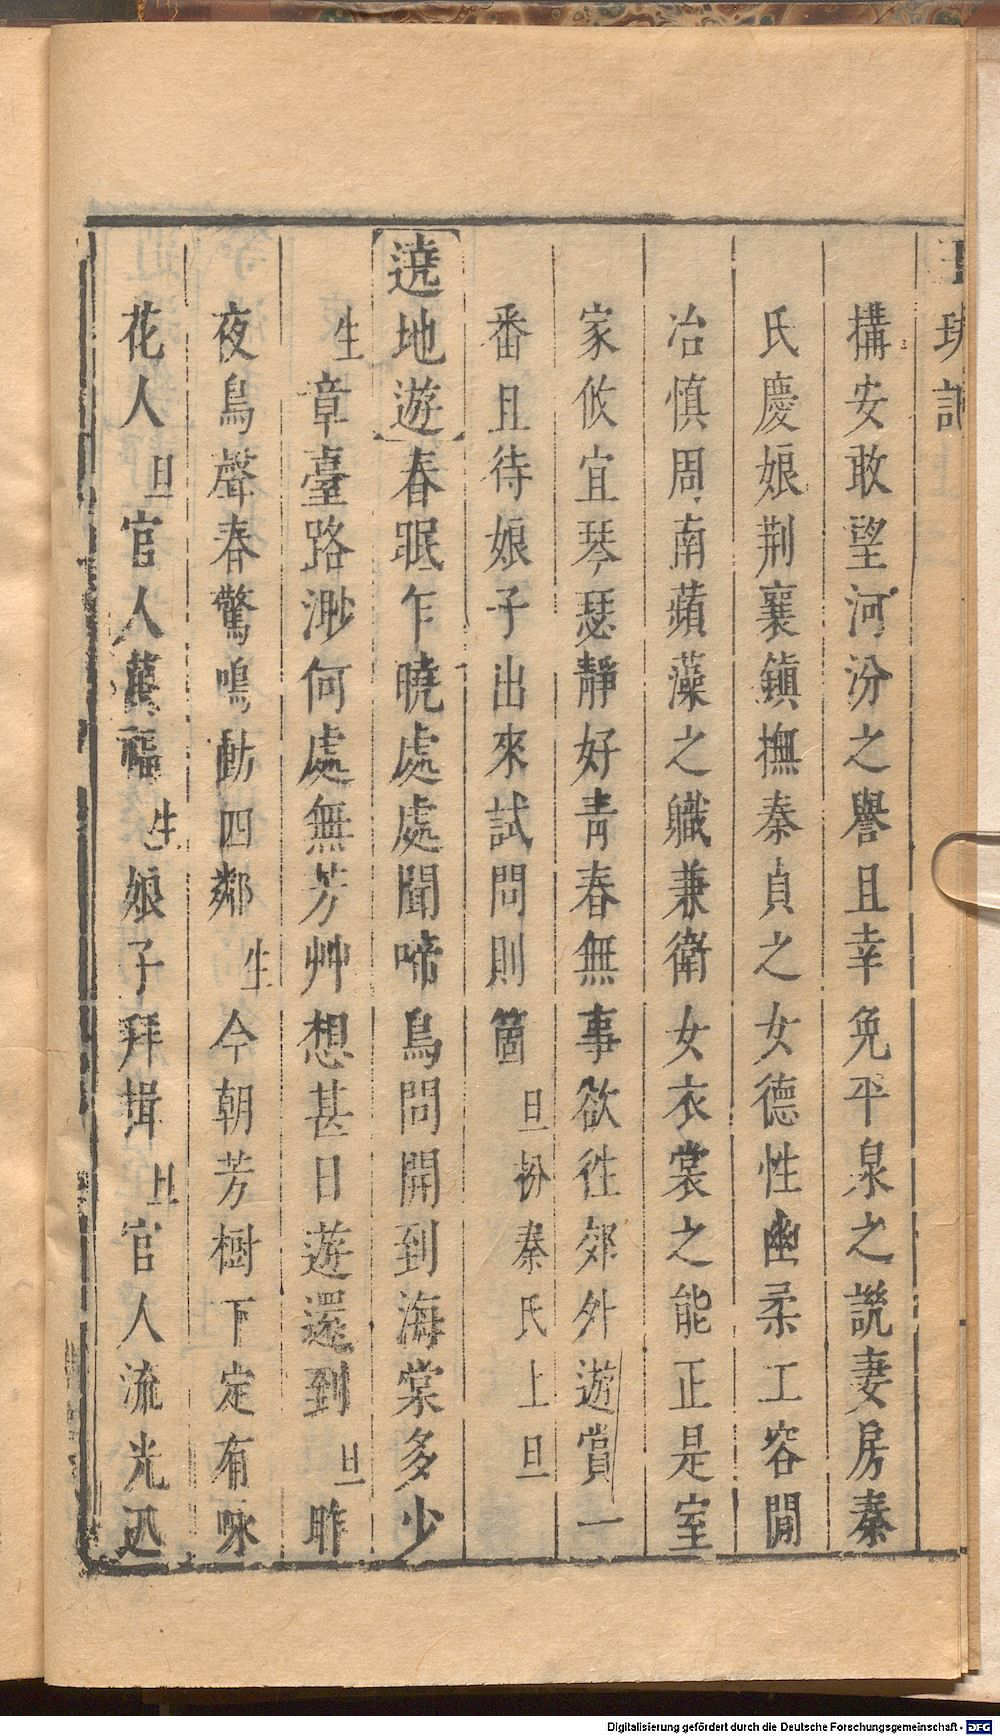 玉玦記
構安敢望河汾之譽且幸免平泉之説妻房秦
氏慶娘荆襄鎮撫秦貞之女德性幽柔工容閒
冶慎周南蘋藻之職兼衛女衣裳之能正是室
家攸宜琴瑟靜好青春無事欲徃郊外遊賞一
番且待娘子出來試問則箇旦扮秦氏上旦
遶地遊春眠乍曉處處聞啼鳥問開到海棠多少
生章臺路渺何處無芳艸想甚日遊還到旦昨
夜鳥聲春驚鳴動四鄰生今朝芳樹下定有咏
花人旦官人萬福生娘子拜揖旦官人流光迅
Digitalisierung gefördert durch die Deutsche Forschungsgemeinschaft - DFG